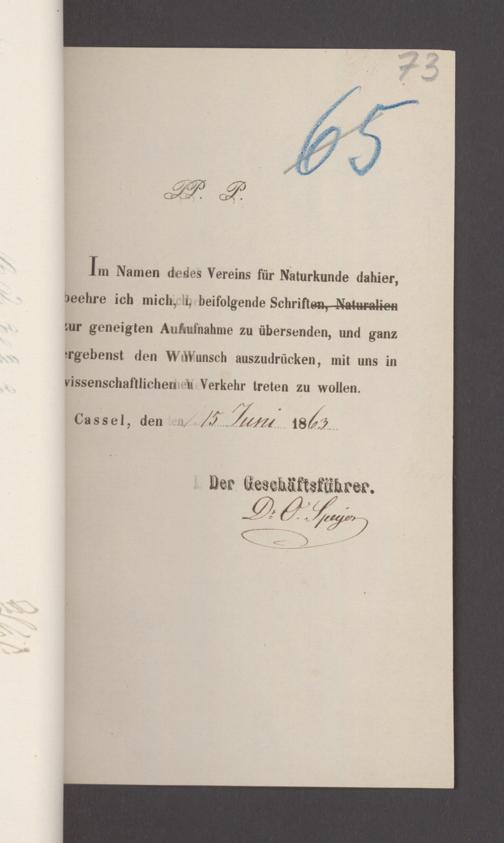 73
65
PP. P.
Im Namen des Vereins für Naturkunde dahier,
beehre ich mich, beifolgende Schriften, Naturalien
zur geneigten Aufnahme zu übersenden, und ganz
ergebenst den Wunsch auszudrücken, mit uns in
wissenschaftlichen Verkehr treten zu wollen.
Cassel, den 15 Juni 1863
Der Geschäftsführer.
Dr O. Speyer